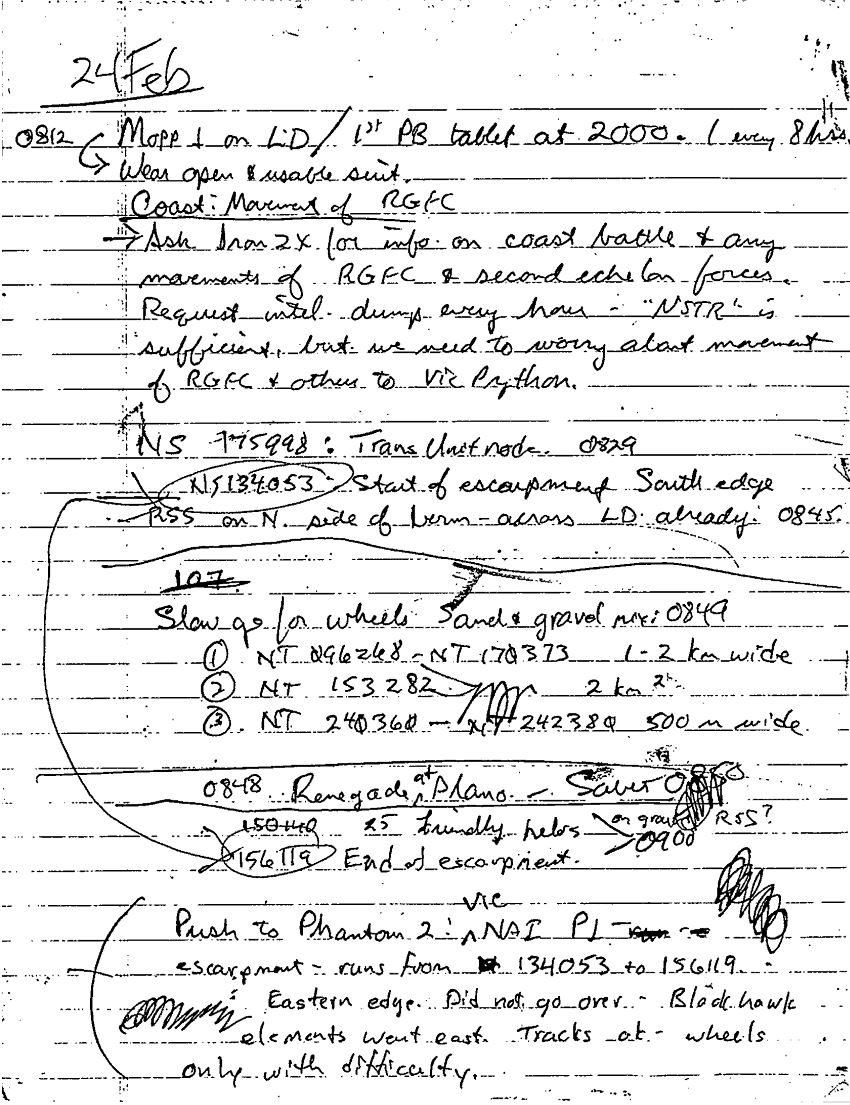 24 Feb
0812 Mopp ↓ on LD / 1st PB tablet at 2000. 1 every 8 hrs.
Wear open & usable suit.
Coast: Movement of RGFC
→ Ask Iron 2X for info on coast battle & any
movements of RGFC & second echelon forces.
Request intel dump every hour - "NSTR" is
sufficient, but we need to worry about movement
of RGFC & others to Vic Python.
NS 775998: Trans Unit node. 0829
NS134053 - Start of escarpment South edge
RSS on N. side of berm - across LD already: 0845.
107
Slow go for wheels Sand & gravel mix: 0849
① NT 096268 - NT 170373 1-2 km wide
② NT 153282 2 km
③ NT 240360 - NT 242380 500 m wide
0848 Renegade at Plano. - Saber 0850
150140 25 friendly helos on ground RSS?
0900
156119 End of escarpment.
Push to Phantom 2: vic NAI P1 -
escarpment - runs from 134053 to 156119. -
Eastern edge. Did not go over - Blackhawk
elements went east. Tracks ok - wheels
only with difficulty.